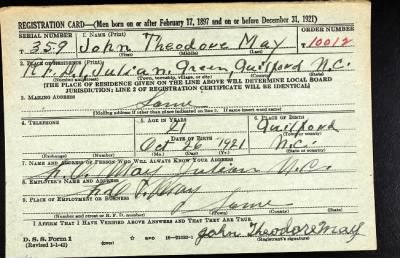 REGISTRATION CARD—(Men born on or after February 17, 1897 and on or before December 31, 1921)
SERIAL NUMBER 1. NAME (Print) ORDER NUMBER
T 359 John Theodore May T10012
(First) (Middle) (Last)
2. PLACE OF RESIDENCE (Print)
R.F.D. 1 Julian Green Guilford N.C.
(Number and street) (Town, township, village, or city) (County) (State)
[THE PLACE OF RESIDENCE GIVEN ON THE LINE ABOVE WILL DETERMINE LOCAL BOARD
JURISDICTION; LINE 2 OF REGISTRATION CERTIFICATE WILL BE IDENTICAL]
3. MAILING ADDRESS
Same
[Mailing address if other than place indicated on line 2. If same insert word same]
4. TELEPHONE 5. AGE IN YEARS 6. PLACE OF BIRTH
21 Guilford
DATE OF BIRTH (Town or county)
Oct 26 1921 N.C.
(Exchange) (Number) (Mo.) (Day) (Yr.) (State or country)
7. NAME AND ADDRESS OF PERSON WHO WILL ALWAYS KNOW YOUR ADDRESS
May Julian N.C.
8. EMPLOYER'S NAME AND ADDRESS
May
9. PLACE OF EMPLOYMENT OR BUSINESS
Same
(Number and street or R. F. D. number) (Town) (County) (State)
I AFFIRM THAT I HAVE VERIFIED ABOVE ANSWERS AND THAT THEY ARE TRUE.
D. S. S. Form 1
(Revised 1-1-42) (over) 16—21630-1 John Theodore May
(Registrant's signature)